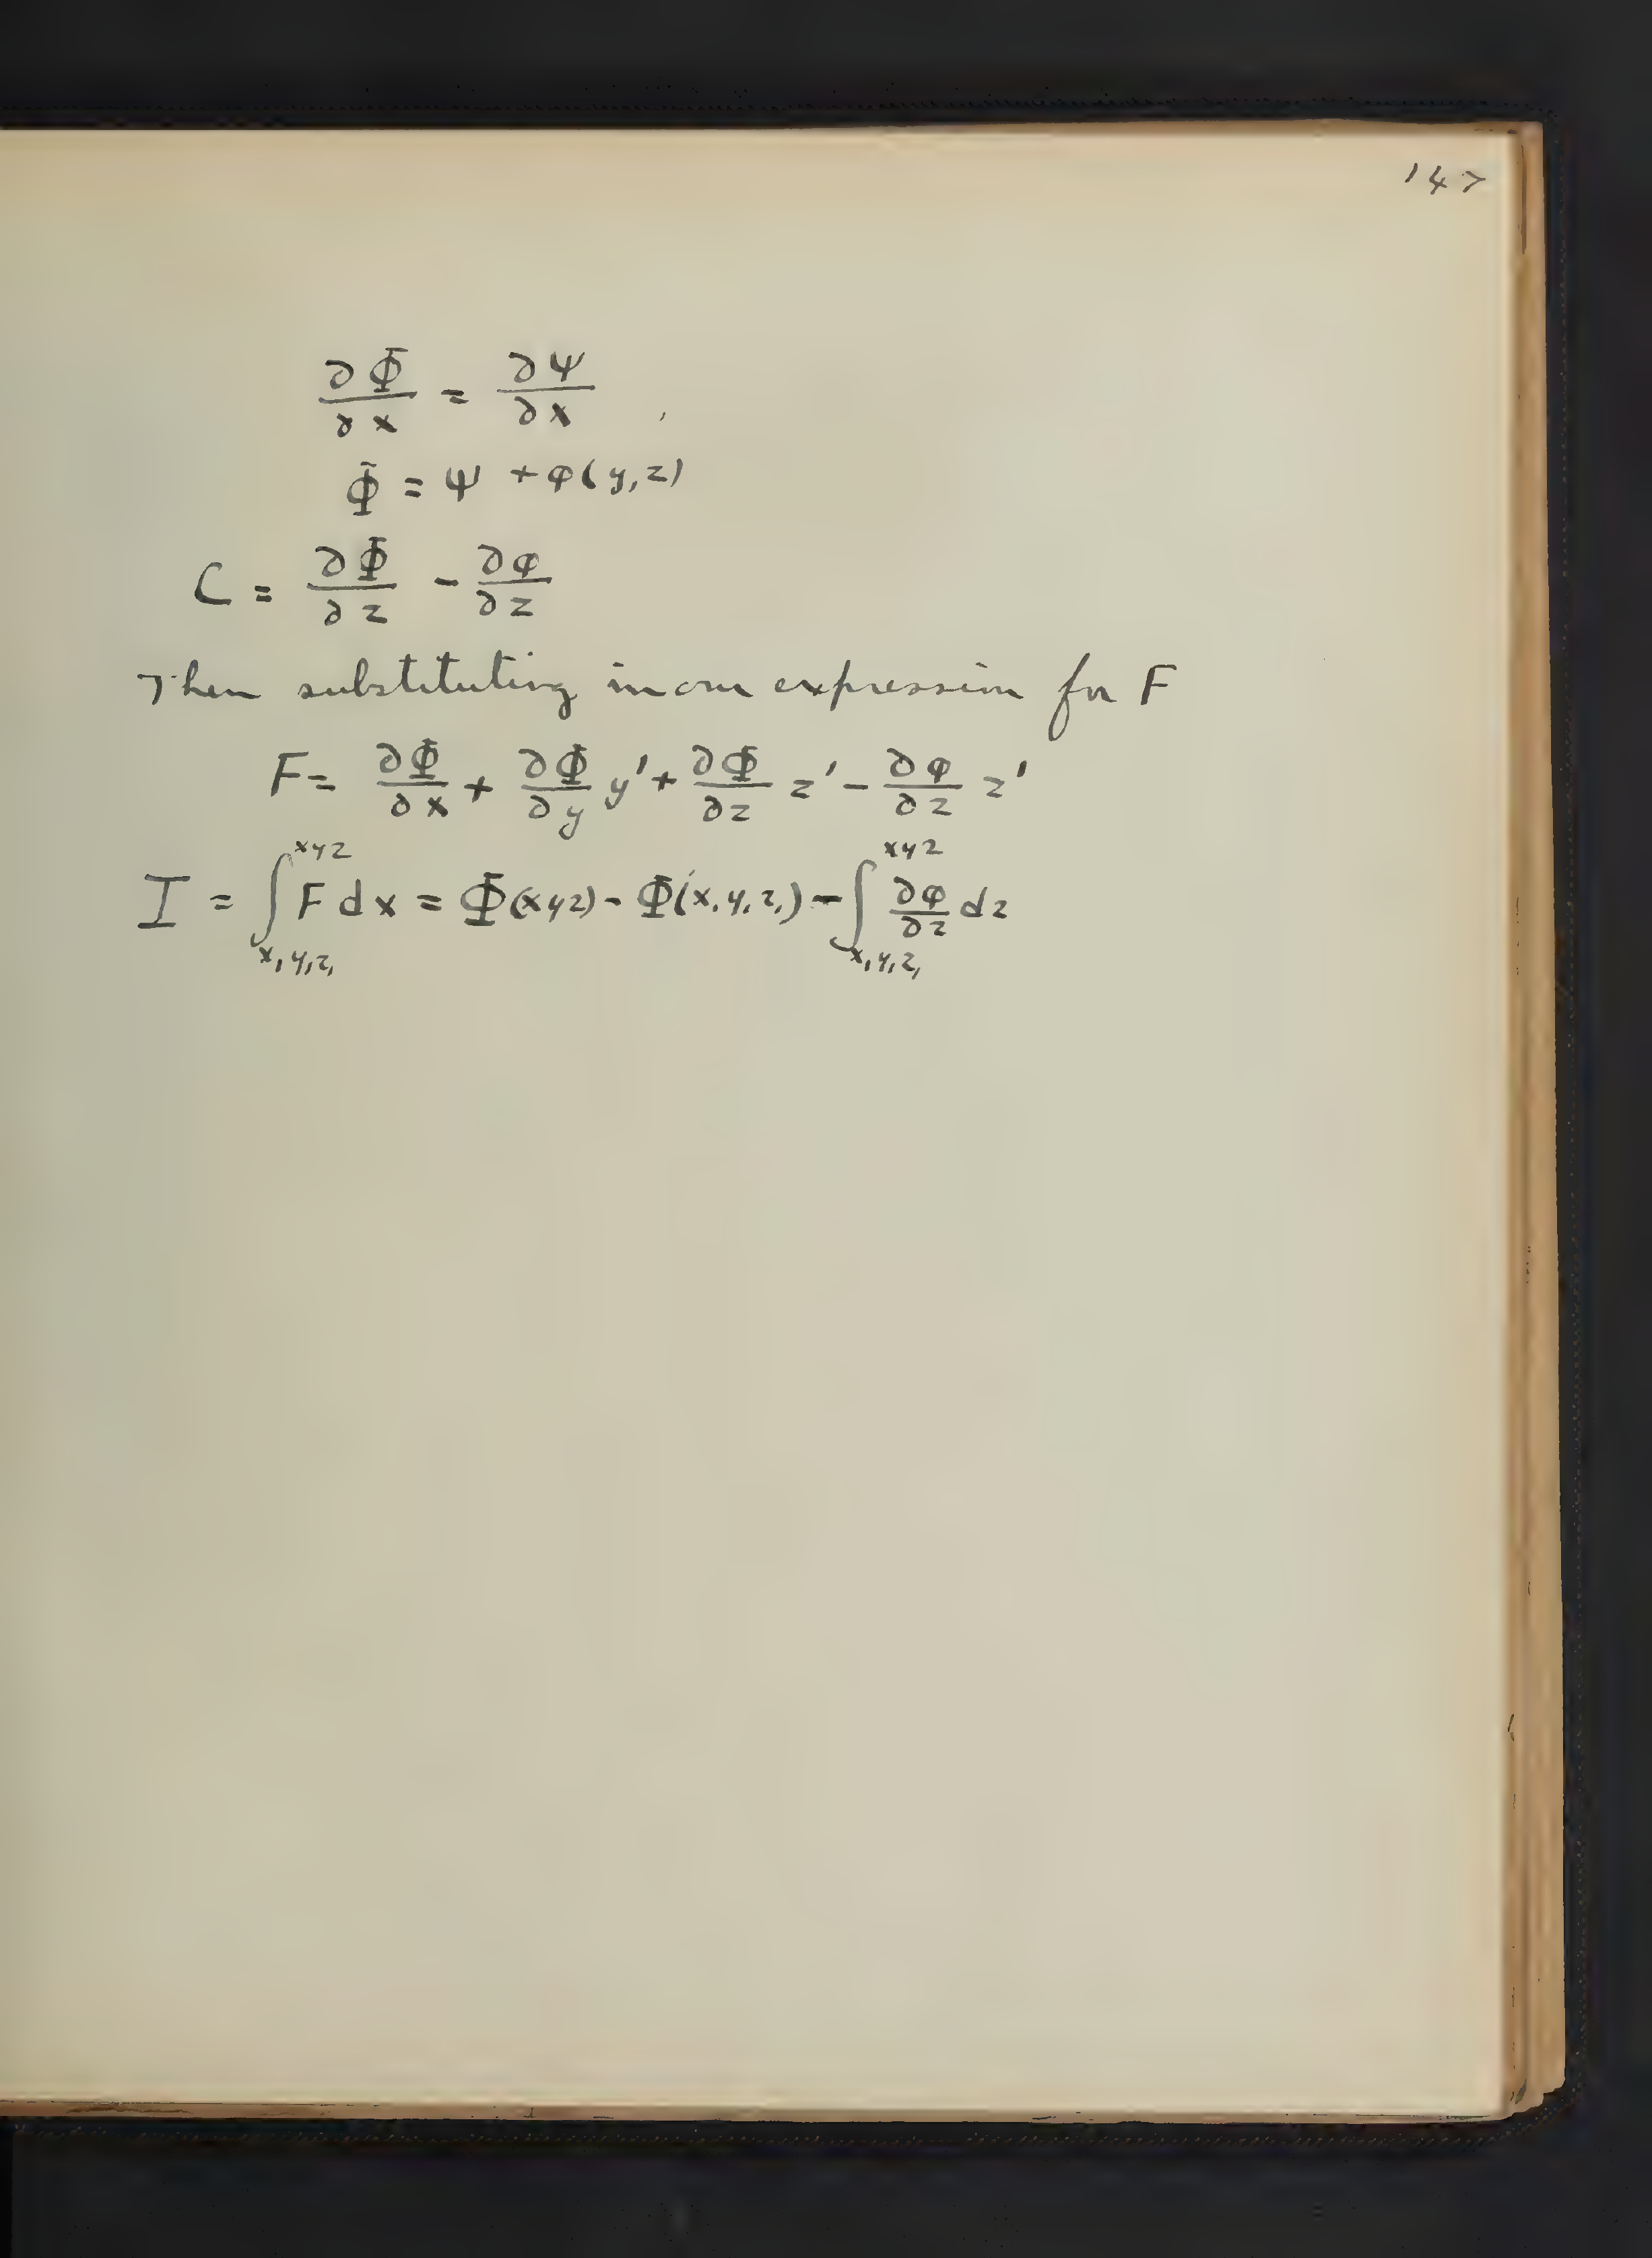 147
∂Φ/∂x = ∂Ψ/∂x ,
Φ = Ψ + φ(y,z)
C = ∂Φ/∂z - ∂φ/∂z
Then substituting in our expression for F
F = ∂Φ/∂x + ∂Φ/∂y y' + ∂Φ/∂z z' - ∂φ/∂z z'
I = ∫_{x₁y₁z₁}^{xyz} F dx = Φ(xyz) - Φ(x₁y₁z₁) - ∫_{x₁y₁z₁}^{xyz} ∂φ/∂z dz